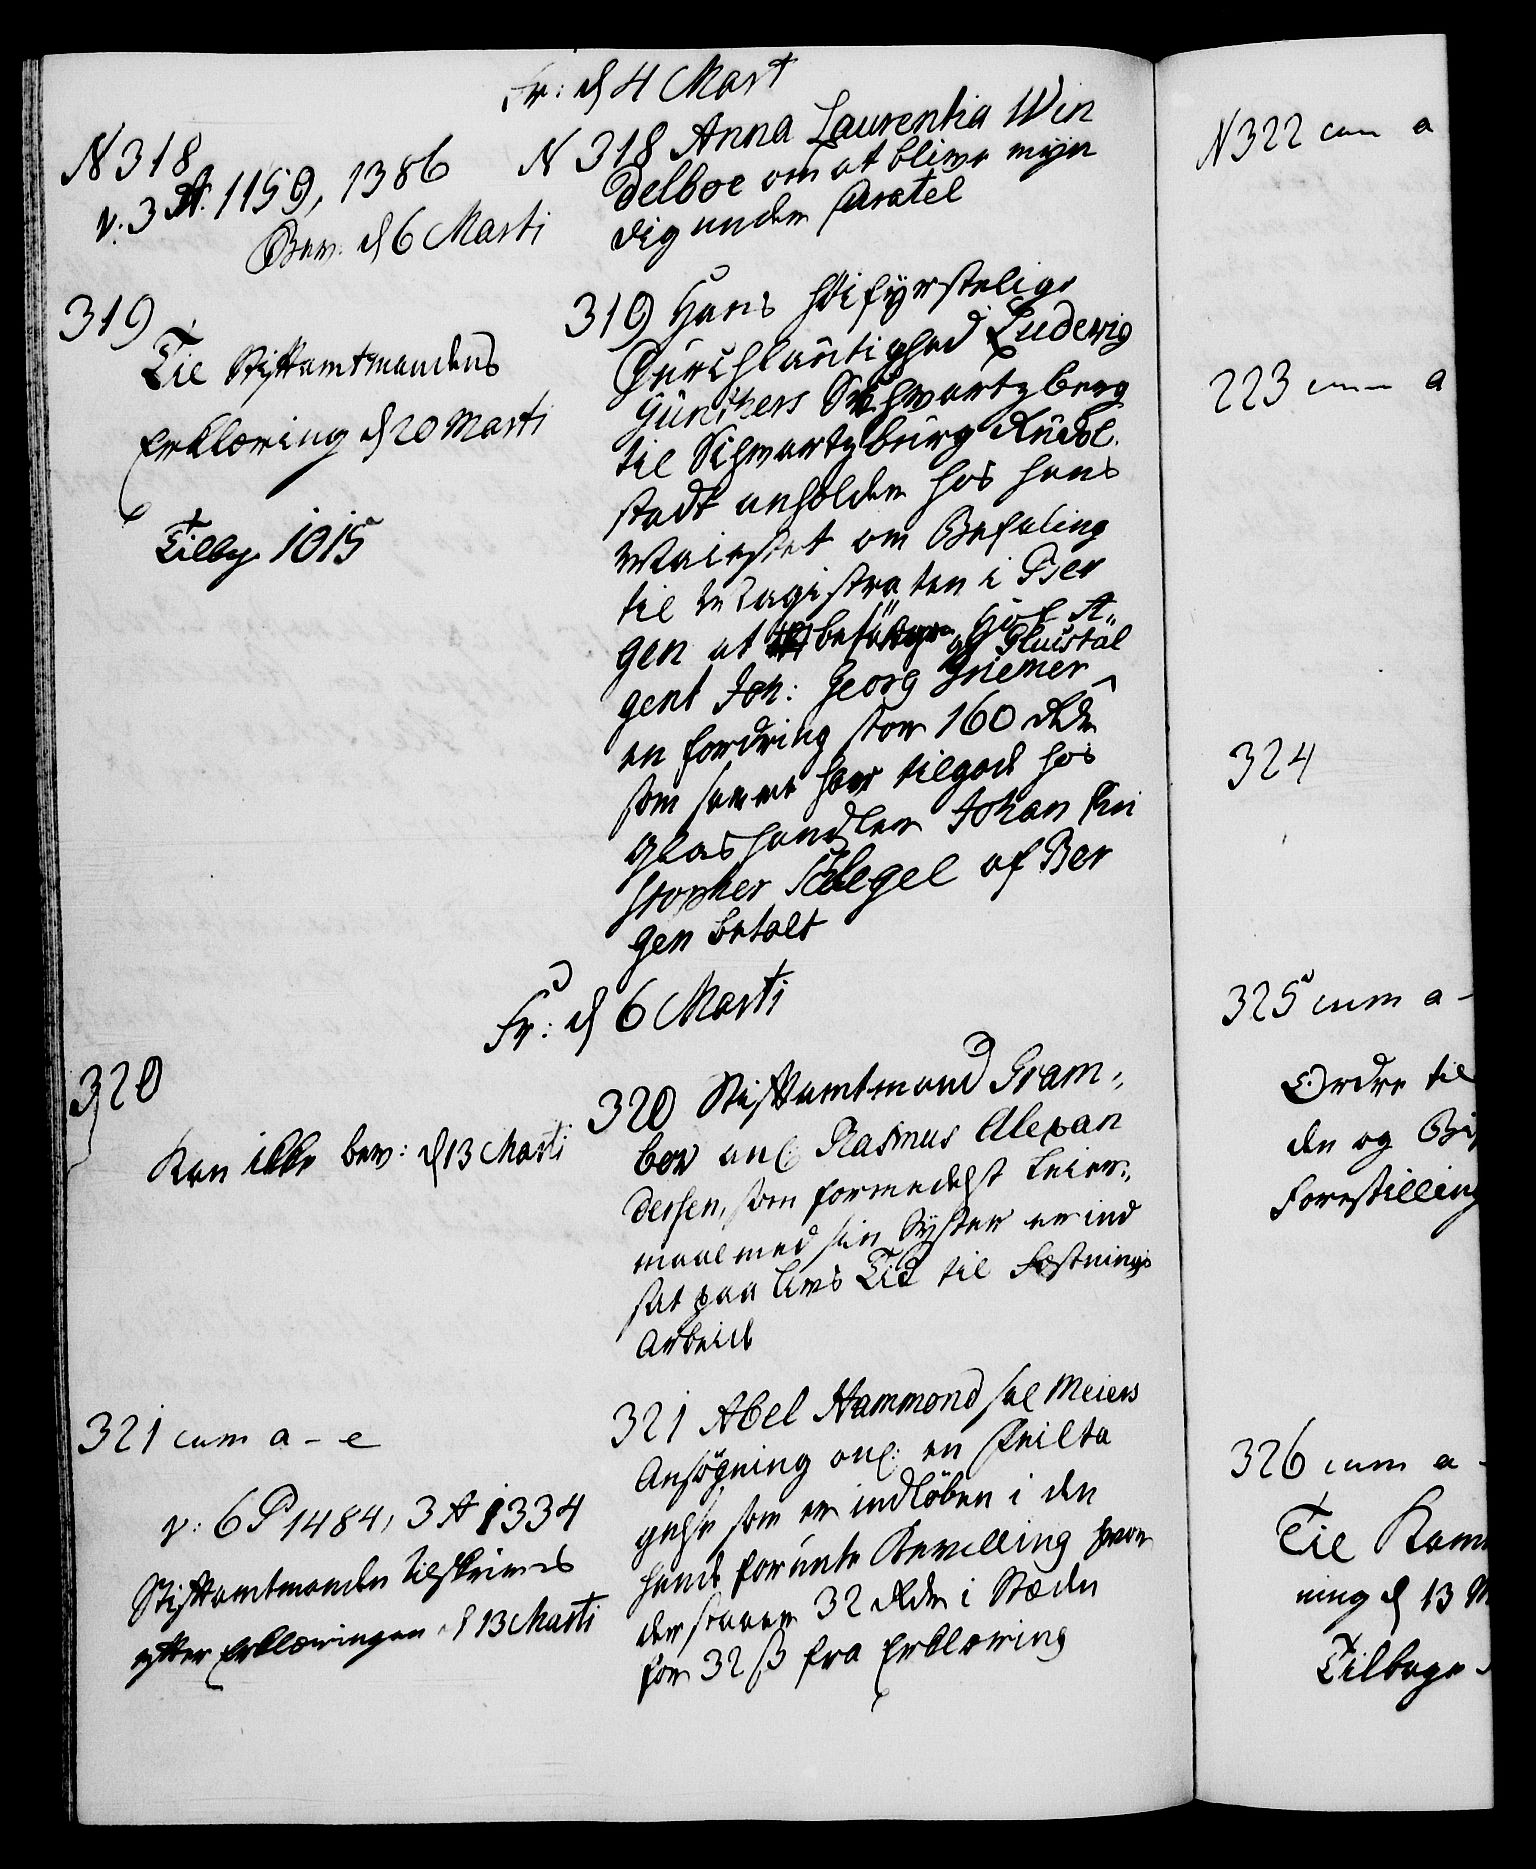 Fr: d 4 Mart
N 318
v. 3 A. 1159, 1386
Bew. d 6 Marti
N 318 Anna Laurentia Win
delboe om at blive myn
dig under Curatel
319
Til Stiftamtmandens
Erklæring d 20 Marti
Tilbg. 1015
319 Hans Høifyrstelige
Durchlautighed Ludewig
Günthers Schwartzberg
til Schwartzburg Rudol
stadt anholder hos hans
Maiestet om Befaling
til Magistraten i Ber
gen at befordre Hof A„
gent Joh: Georg Griemer
en fordring stor 160 Rdr
som samme har tilgode hos
Glashandler Johan Kri
stopher Schlegel af Ber
gen betalt
Fr: d 6 Marti
320
Kan ikke bew: d 13 Marti
320 Stiftamtmand Gram„
bow anl: Rasmus Alexan
dersen, som formedelst Leier„
maal med sin Syster er ind
sat paa Livs Tid til Fæstnings
Arbeide
321 cum a - e
v: 6 P 1484, 3 A 1334
Stiftamtmanden tilskrives
efter Erklæringen d 13 Marti
321 Abel Hammond sal Meiers
Ansøgning anl: en Feilta
gelse som er indløben i den
hende forunte Bevilling hvor
der staaer 32 Rdr i Stæden
for 32 ß fra Erklæring
N 322 cum a
223 cum a
324
325 cum a -
Ordre til
den og Bi
Forestilling
326 cum a -
Til Kam
ning d 13 M
Tilbage